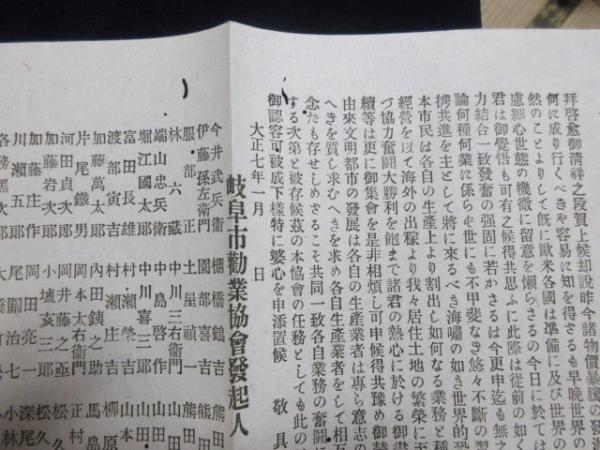 拜啓愈御清祥之段賀上候却說昨今諸物價暴騰の發
何に成り行くべきや容易に知を得さるも早晚世界の
然のことよりして既に歐米各國は準備に及び世界の
慮細心世態の機微に留意を懶らさるの今日に於ては
君は御覺悟も可有之候得共思ふに此際は從前の如く
力結合一致發奮の强固に若かさるは今更申迄も無之
論何種何業に係らせ世にも不甲斐なき悠々不斷の
携共進を主として將に來るべき海嘯の如き世界的恐
本市民は各自の生產上より割出し如何なる業務と種
經營を以て海外の出稼より我々居住土地の繁榮に至
づ協力奮鬪大勝利を飽まで諸君の熱心に於ける御
續等は更に御集會を是非相煩し可申候得共豫め御
由來文明都市の發展は各自の生產業者は專ら意志の
へきを質し求むへきを求め各自生產業者をして相互
念たも存せしめさるこそ共同一致各自業務の奮鬪に
する次第と被存候玆の本協會の任務としても此の
御認容可被成下樣特に婆心を申添置候 敬具
大正七年一月 日
岐阜市勸業協會發起人
今井武兵衞 棚橋鶴吉 熊田
伊藤孫左衞門 園部喜吉 熊田
服部正 土屋禎一 山田
林六藏 中島啓作 山田
端山忠兵衞 中川三右衞門 山田
堀江國太郞 中川喜三郞 山田
富田長雄 村瀨榮吉 山本
渡部寅吉 村瀨庄吉 柳原
加藤萬太郞 內田銕之助 馬島
片尾鐵男 岡本太右衞門 正村
河田貞次郞 岡井藤之亟 松久
加藤岩次郞 小壚亥三郞 松久
加藤庄作 岡田亮一 深尾
川瀨五郞 大橋關治 小
各務黑次郞 大橋